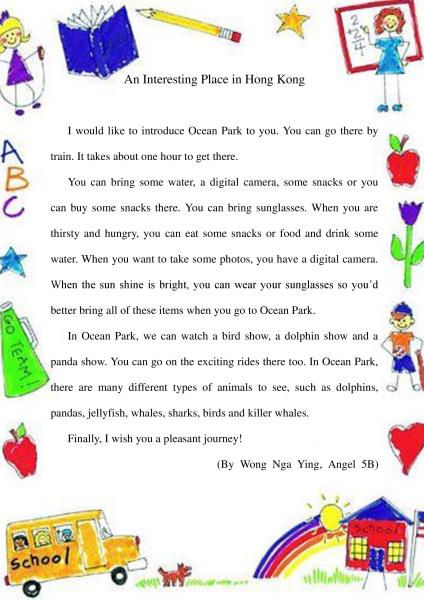 2
+2
4
An Interesting Place in Hong Kong
I would like to introduce Ocean Park to you. You can go there by
train. It takes about one hour to get there.
You can bring some water, a digital camera, some snacks or you
can buy some snacks there. You can bring sunglasses. When you are
thirsty and hungry, you can eat some snacks or food and drink some
water. When you want to take some photos, you have a digital camera.
When the sun shine is bright, you can wear your sunglasses so you'd
better bring all of these items when you go to Ocean Park.
In Ocean Park, we can watch a bird show, a dolphin show and a
panda show. You can go on the exciting rides there too. In Ocean Park,
there are many different types of animals to see, such as dolphins,
pandas, jellyfish, whales, sharks, birds and killer whales.
Finally, I wish you a pleasant journey!
(By Wong Nga Ying, Angel 5B)
A
B
C
GO
TEAM!
School
School